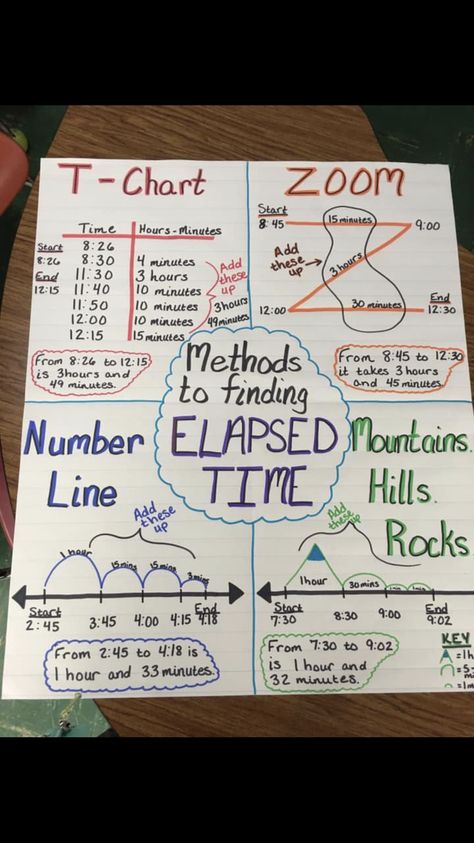 T-Chart
Time Hours-Minutes
Start 8:26
8:26 8:30 4 minutes
End 11:30 3 hours
12:15 11:40 10 minutes
11:50 10 minutes
12:00 10 minutes
12:15 15 minutes
Add
these
up
3 hours
49 minutes
From 8:26 to 12:15
is 3 hours and
49 minutes.
ZOOM
Start
8:45 15 minutes 9:00
Add
these
up
3 hours
30 minutes End
12:00 12:30
From 8:45 to 12:30
it takes 3 hours
and 45 minutes.
Methods
to finding
ELAPSED
TIME
Number
Line
Add
these
up
1 hour 15 mins 15 mins 3 mins
Start End
2:45 3:45 4:00 4:15 4:18
From 2:45 to 4:18 is
1 hour and 33 minutes.
Mountains.
Hills.
Rocks
Add
these
up
1 hour 30 mins
Start End
7:30 8:30 9:00 9:02
From 7:30 to 9:02
is 1 hour and
32 minutes.
KEY